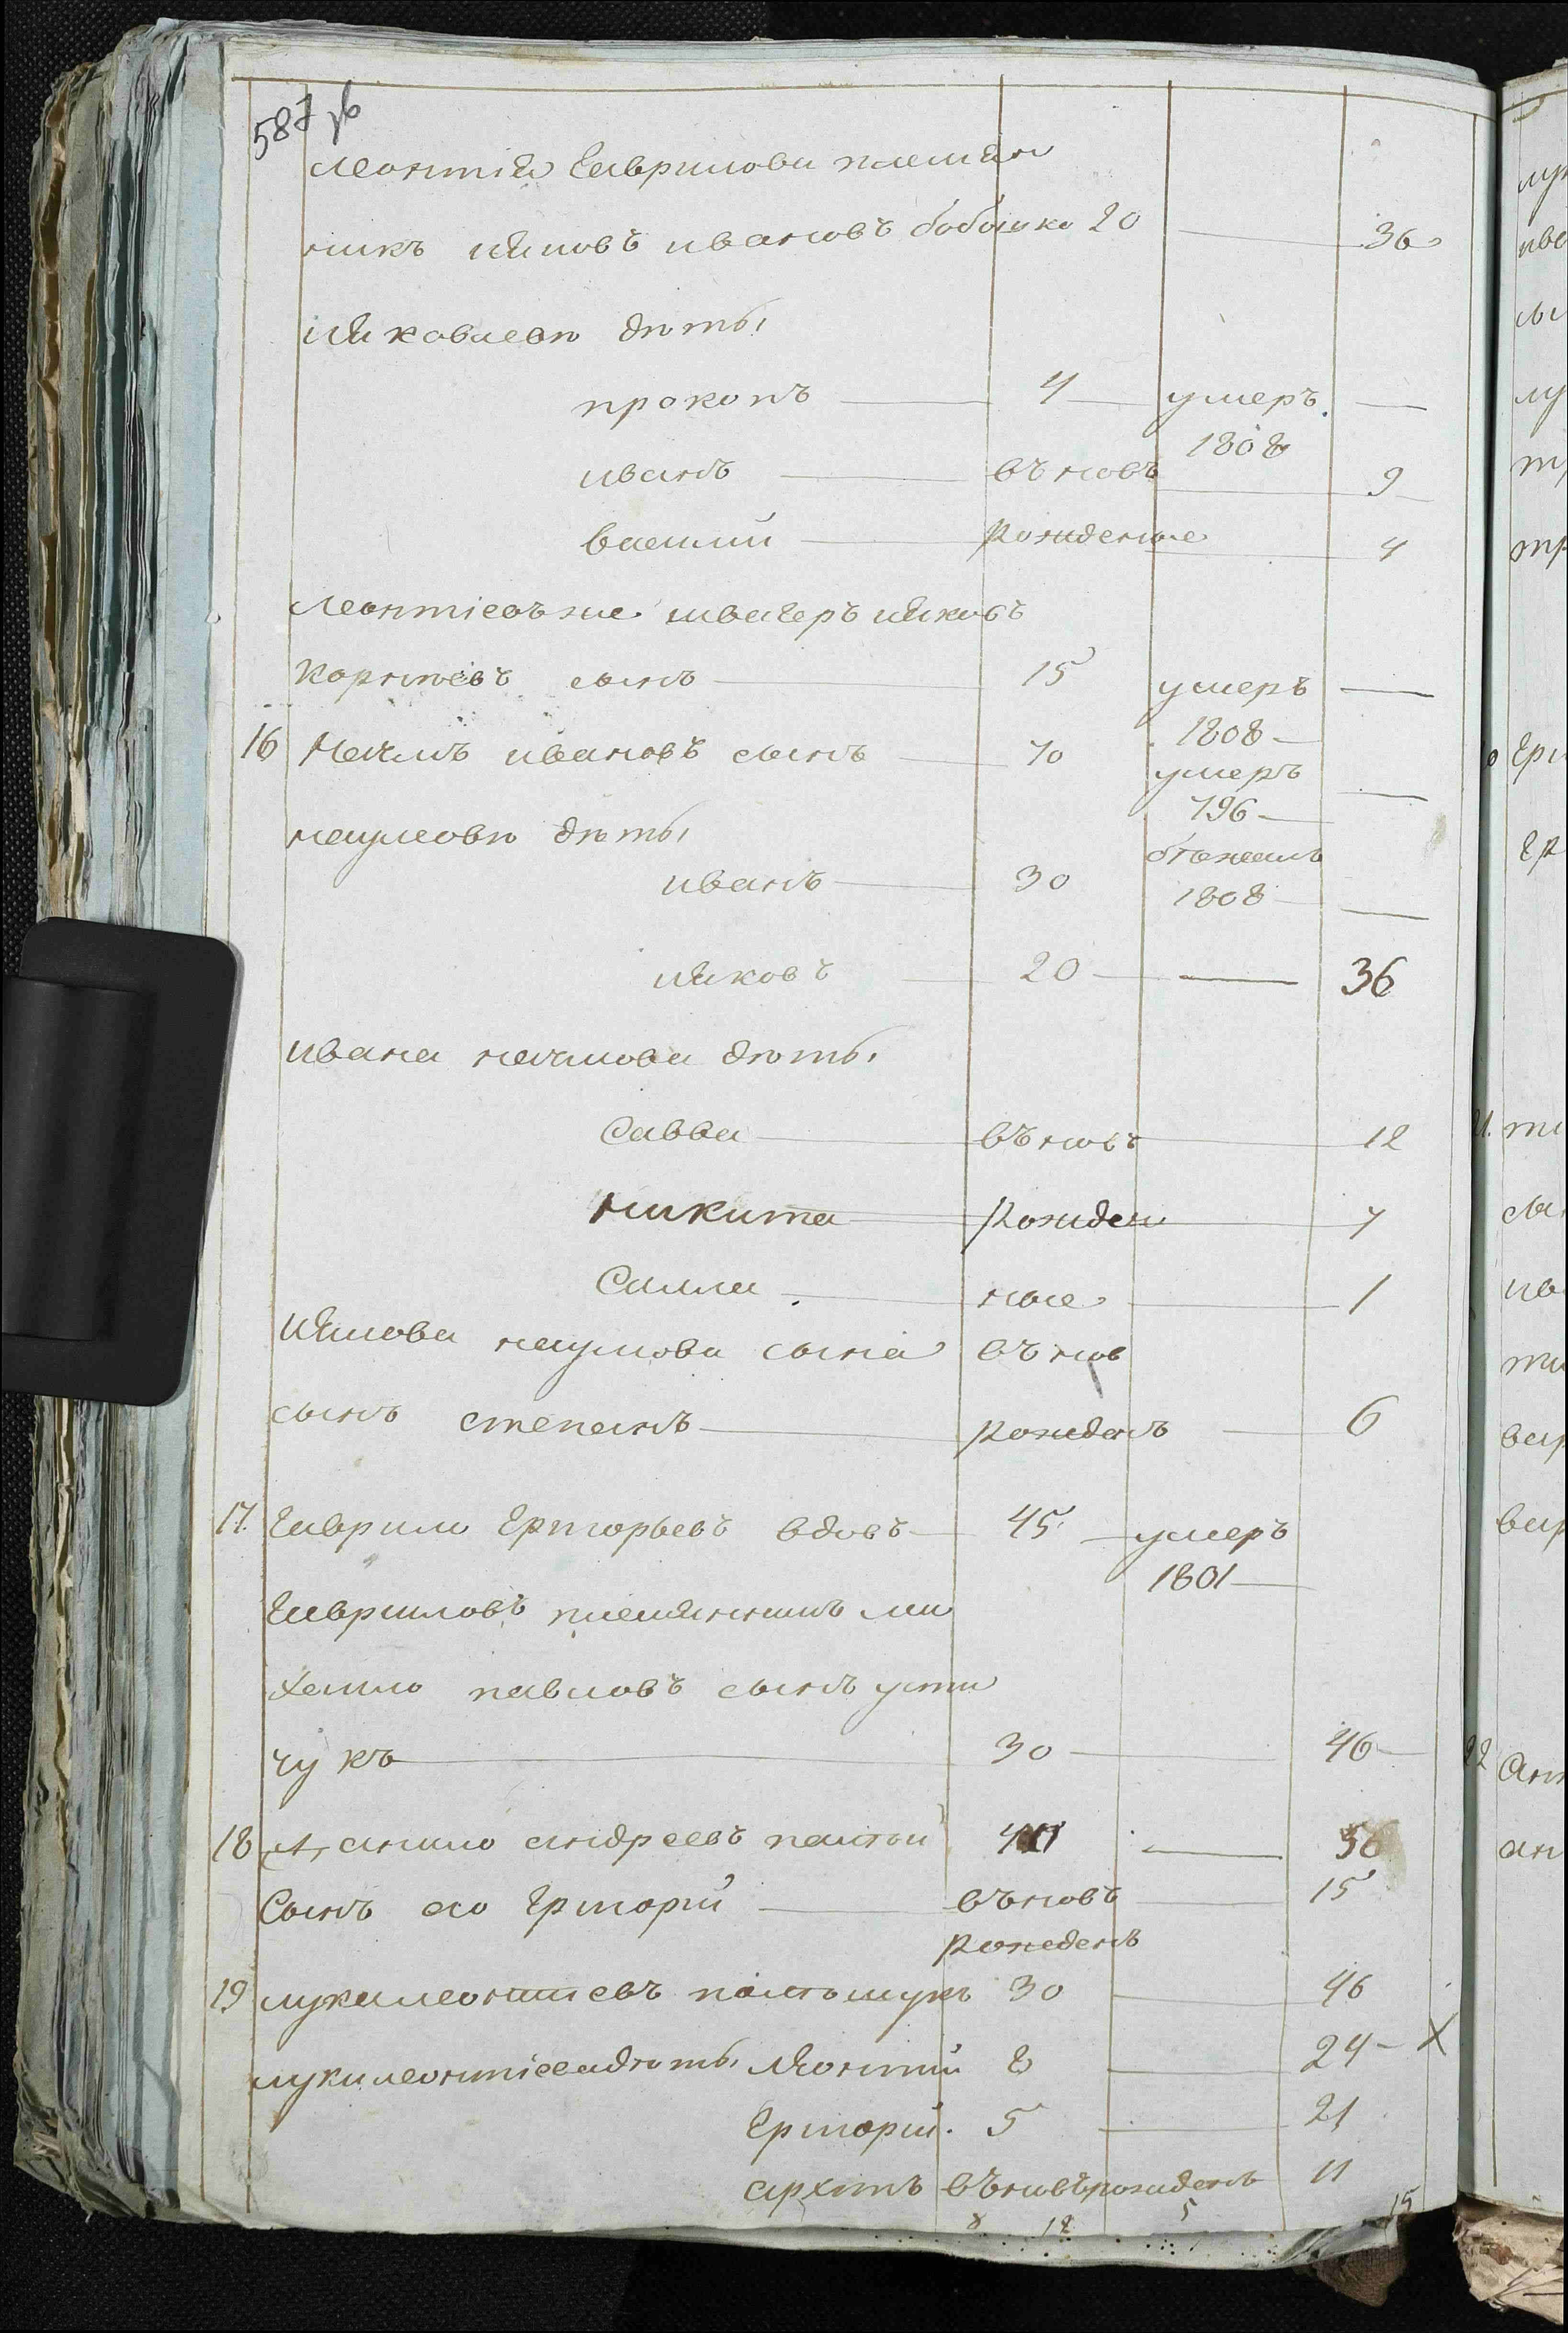 587 об
Леонтия Гаврилова племян
никъ Яковъ Ивановъ Бобошко 20 — 36
Яковлевы дѣты
Прокопъ — 4 — умеръ —
1808
Иванъ — въновъ — 9
Василий — рожденные — 4
Леонтіевъ же швагеръ Яковъ
Корнѣевъ сынъ — 15 умеръ —
1808 —
16 Наумъ Ивановъ сынъ — 70 умеръ —
796 —
Наумовы дѣты
Иванъ — 30 бѣжалъ
1808 —
Яковъ — 20 — — 36
Ивана Наумова дѣты
Савва — въновъ — 12
Никита — рожден — 7
Самла — ные — 1
Якова Наумова сына въ нов
сынъ Степанъ — рожденъ — 6
17. Гаврило Григорьевъ вдовъ — 45 — умеръ
1801 —
Гавриловъ племянникъ Ми
хайло Павловъ сынъ Усти
чукъ — 30 — 46 —
18 Данило Андреевъ — 56
Сынъ его Григорій — въновъ — 15
рожденъ
19 Лука Леонтиевъ 30 — 46
Луки Леонтіева дѣты Леонтий 8 — 24 — X
Григорий. 5 — 21
Архипъ въновъ рожденъ 11
8 12 5 15